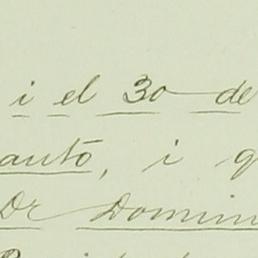 i el 30 de
auto, i q
Dr Domin